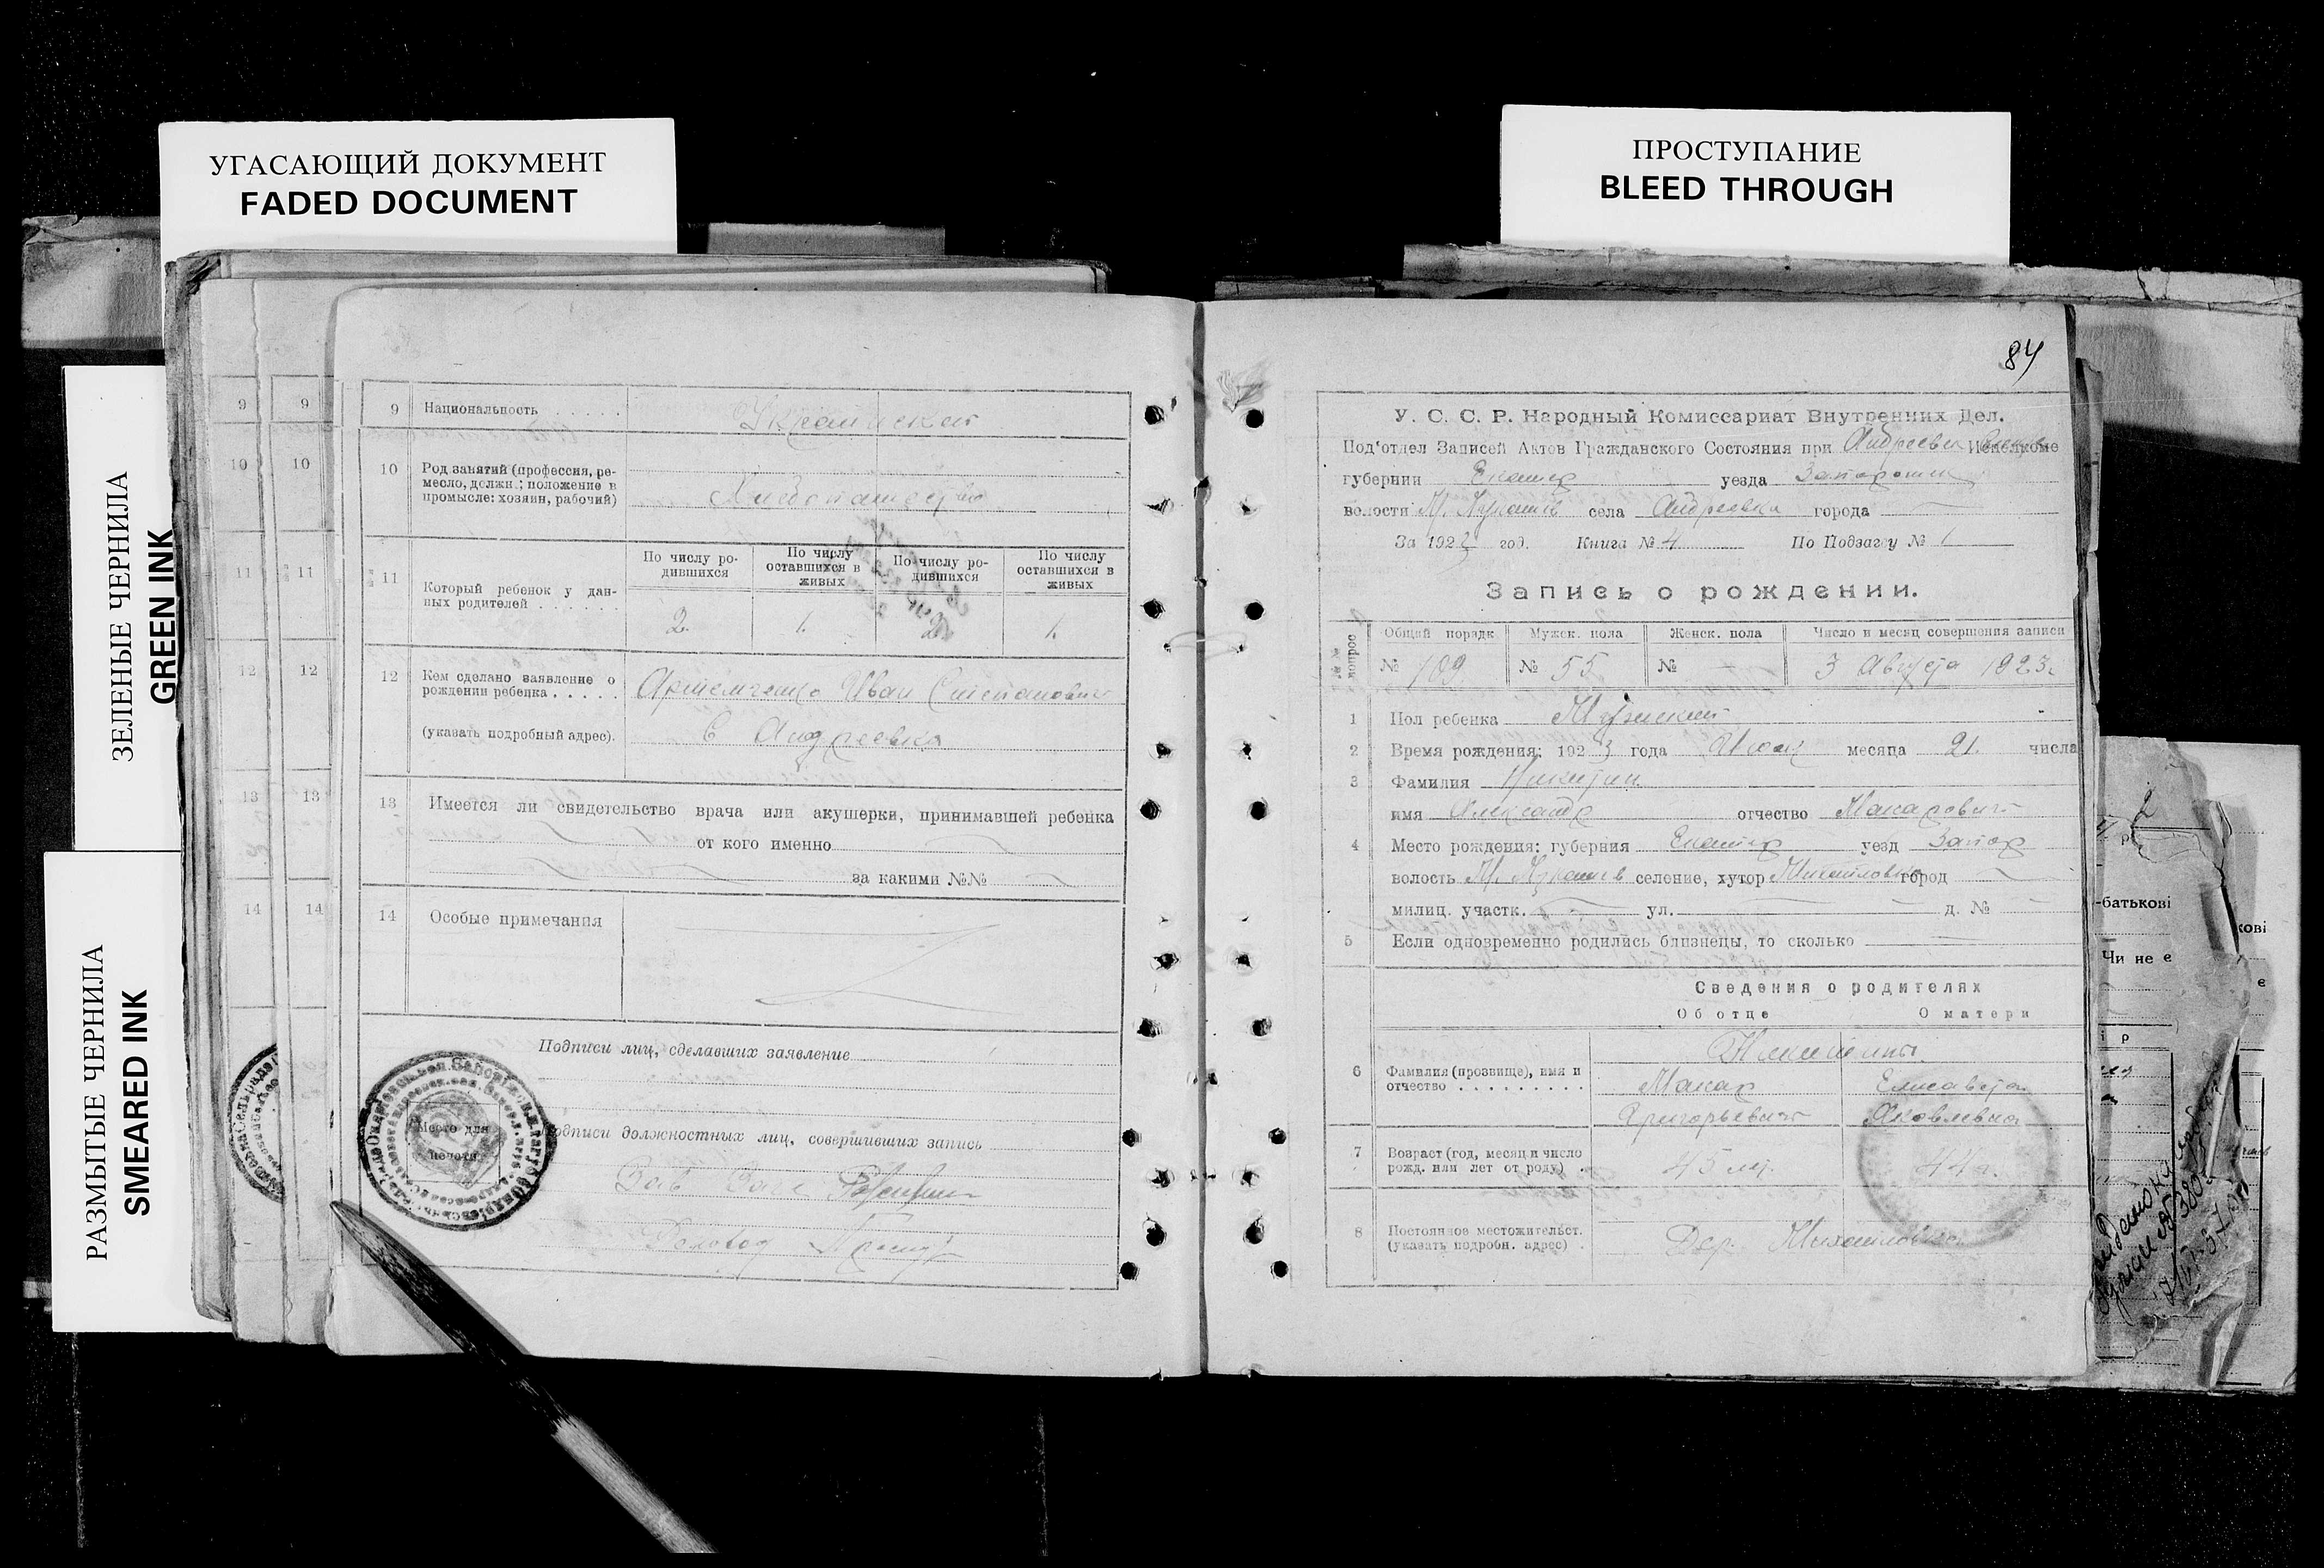 УГАСАЮЩИЙ ДОКУМЕНТ
FADED DOCUMENT
ПРОСТУПАНИЕ
BLEED THROUGH
ЗЕЛЕНЫЕ ЧЕРНИЛА
GREEN INK
РАЗМЫТЫЕ ЧЕРНИЛА
SMEARED INK
9 9
10 10
11 11
12 12
13 13
14 14
9 Национальность . . . . . Украинская
10 Род занятий (профессия, ре-
месло, должн.; положение в
промысле: хозяин, рабочий)
Хлебопашество
11 Который ребенок у дан-
ных родителей . . . . . .
По числу ро-
дившихся
По числу
оставшихся в
живых
По числу ро-
дившихся
По числу
оставшихся в
живых
2. 1. 2. 1.
12 Кем сделано заявление о
рождении ребенка . . . . . Артемченко Иван Степанович
(указать подробный адрес). С Андреевка
13 Имеется ли свидетельство врача или акушерки, принимавшей ребенка
от кого именно
за какими №№
14 Особые примечания
Подписи лиц, сделавших заявление
Подписи должностных лиц, совершивших запись
Место для
печати
Зав Загс
84
У. С. С. Р. Народный Комиссариат Внутренних Дел.
Под'отдел Записей Актов Гражданского Состояния при Андреевск Исполкоме
губернии Екатер уезда Запорожск
волости села Андреевка города
За 1923 год. Книга № 4 По Подзагсу № 1
Запись о рождении.
№№ вопрос
Общий порядк Мужск. пола Женск. пола Число и месяц совершения записи
№ 109 № 55 № — 3 Августа 1923г
1 Пол ребенка Мужской
2 Время рождения: 1923 года месяца 21. числа
3 Фамилия Никитин
имя Александр отчество Макарович
4 Место рождения: губерния Екатер уезд Запор
волость селение, хутор Михайловка город
милиц. участк. ул. д. №
5 Если одновременно родились близнецы, то сколько
Сведения о родителях
Об отце О матери
6 Фамилия (прозвище), имя и
отчество . . . . . . . . .
Никитины.
Макар Елисавета
Григорьевич Яковлевна
7 Возраст (год, месяц и число
рожд. или лет от роду) . 45 лет. 44 г.
8 Постоянное местожительст.
(указать подробн. адрес) . Дер. Михайловка
-батькові
Чи не є
кові
є